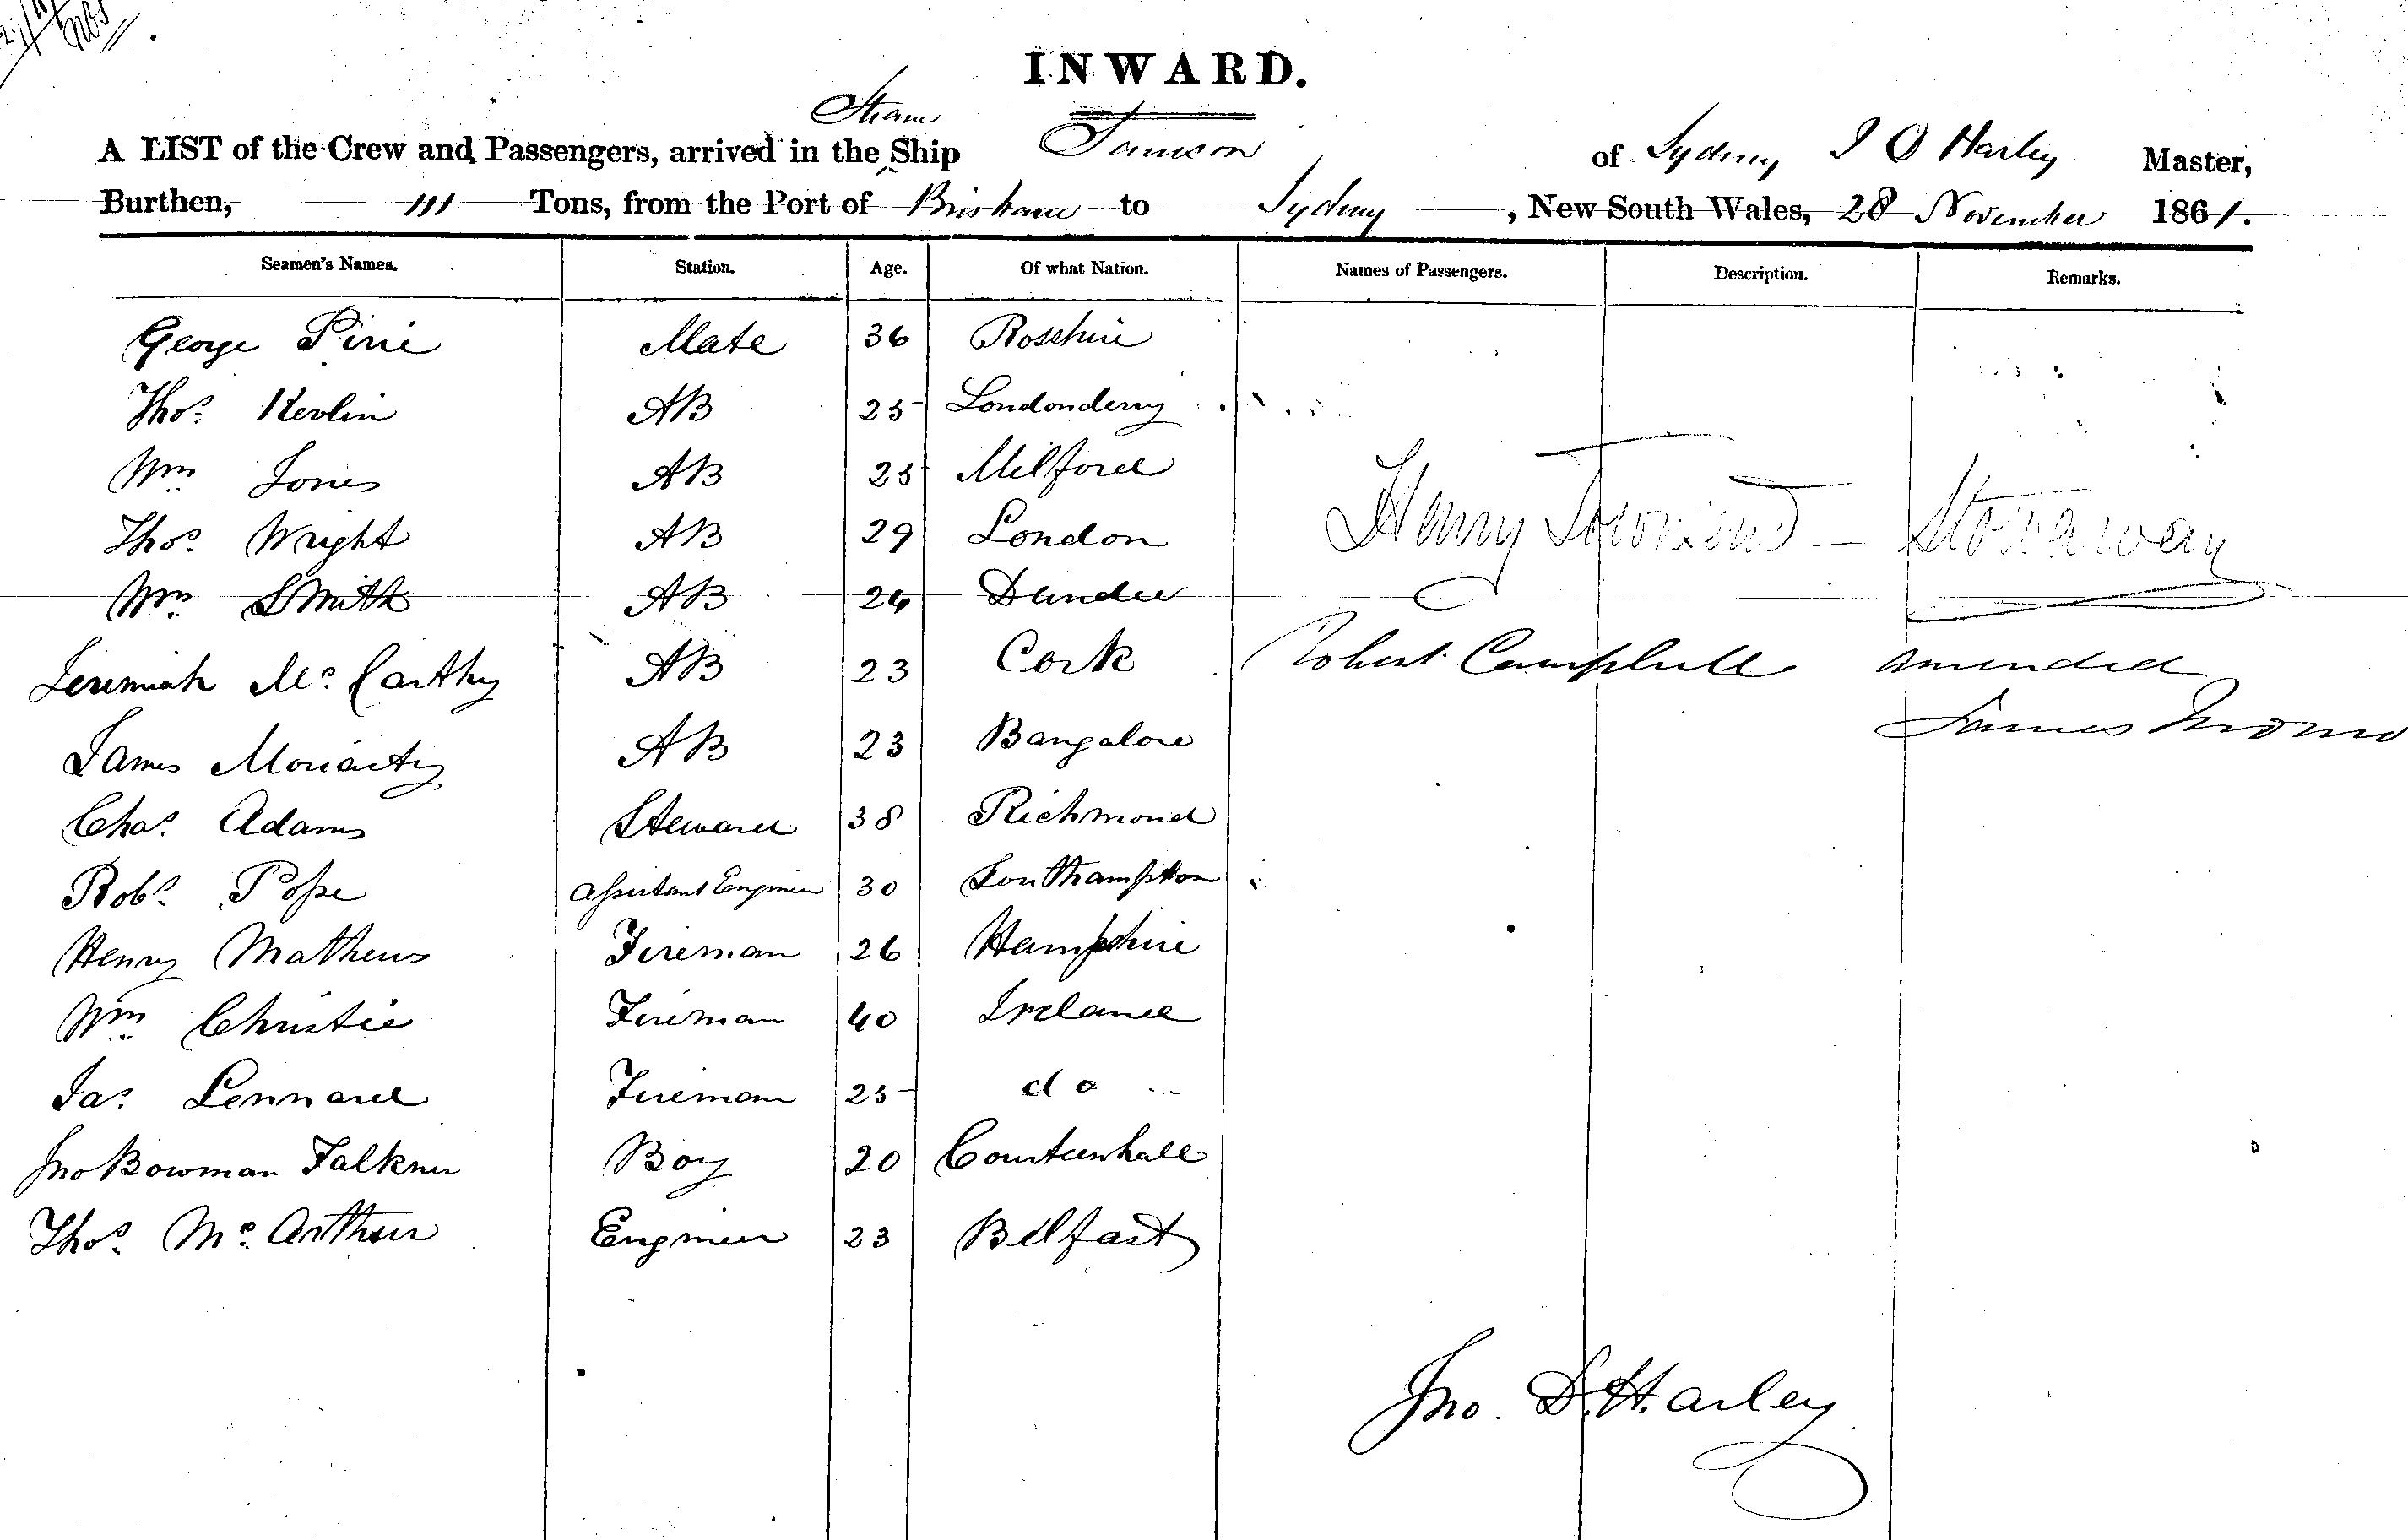 INWARD.
Steam
A LIST of the Crew and Passengers, arrived in the ^ Ship Samson of Sydney J D Harley Master,
Burthen, 111 Tons, from the Port of Brisbane to Sydney, New South Wales, 28 November 1861.
Seamen's Names. Station. Age. Of what Nation. Names of Passengers. Description. Remarks.
George Pirie Mate 36 Rosshire
Thos. Kevlin AB 25 Londonderry
Wm Jones AB 25 Milford
Thos. Wright AB 29 London Henry Townsend - Stowaway
Wm Smith AB 24 Dundee
Jeremiah Mc. Carthy AB 23 Cork Robert Campbell amended
James
James Moriarty AB 23 Bangalore
Chas. Adams Steward 38 Richmond
Robt. Pope Assistant Engineer 30 Southampton
Henry Mathews Fireman 26 Hampshire
Wm Christie Fireman 40 Ireland
Jas. Lennard Fireman 25 do
Jno Bowman Falkner Boy 20 Courteenhall
Thos. Mc. Arthur Engineer 23 Belfast
Jno. D. Harley